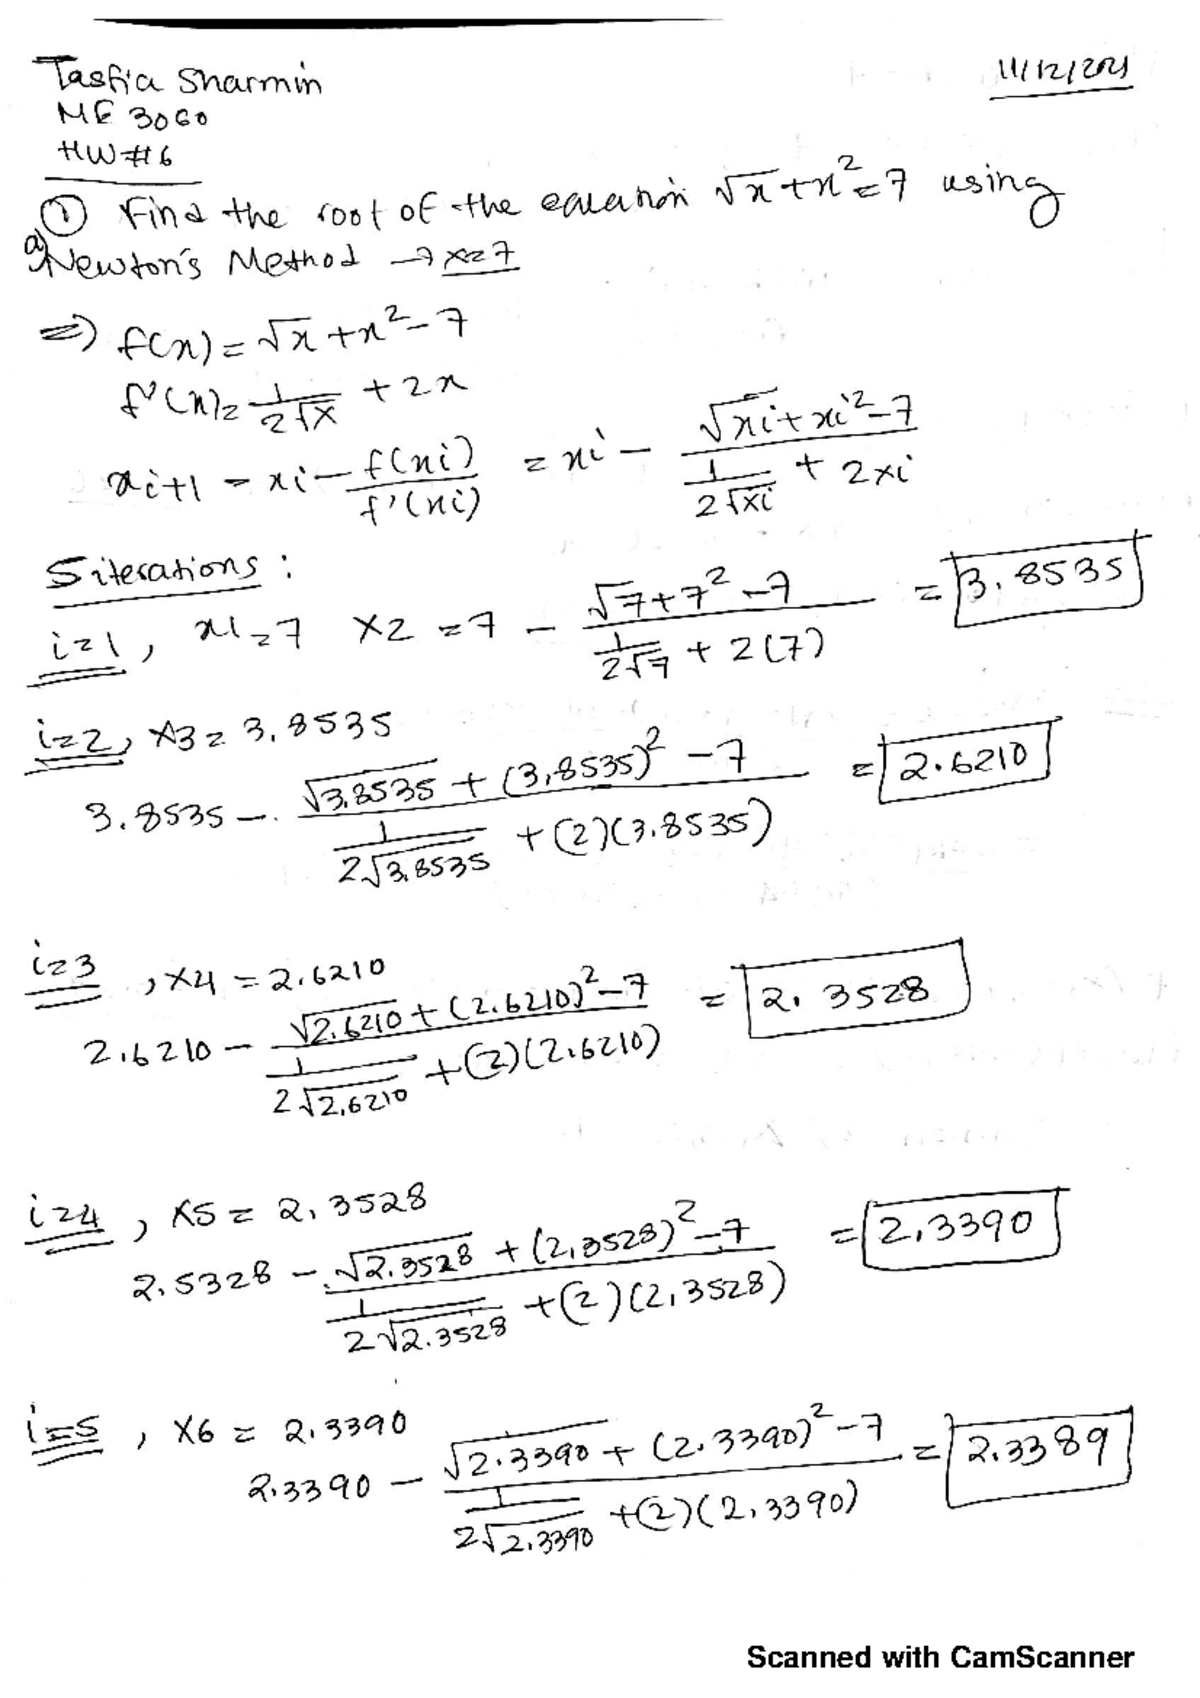 Tasfia Sharmin
11/12/2021
ME 3060
HW#6
① Find the root of the equation √x+x²=7 using
a) Newton's Method → x=7
⇒) f(x) = √x + x² - 7
f'(x) = 1/(2√x) + 2x
xi+1 = xi - f(xi)/f'(xi) = xi - (√xi + xi² - 7)/(1/(2√xi) + 2xi)
5 iterations :
i=1, x1=7 x2 = 7 - (√7+7²-7)/(1/(2√7) + 2(7)) = 3.8535
i=2, x3 = 3.8535
3.8535 - (√3.8535 + (3.8535)² - 7)/(1/(2√3.8535) + (2)(3.8535)) = 2.6210
i=3, x4 = 2.6210
2.6210 - (√2.6210 + (2.6210)² - 7)/(1/(2√2.6210) + (2)(2.6210)) = 2.3528
i=4, x5 = 2.3528
2.5328 - (√2.3528 + (2.3528)² - 7)/(1/(2√2.3528) + (2)(2.3528)) = 2.3390
i=5, x6 = 2.3390
2.3390 - (√2.3390 + (2.3390)² - 7)/(1/(2√2.3390) + (2)(2.3390)) = 2.3389
Scanned with CamScanner